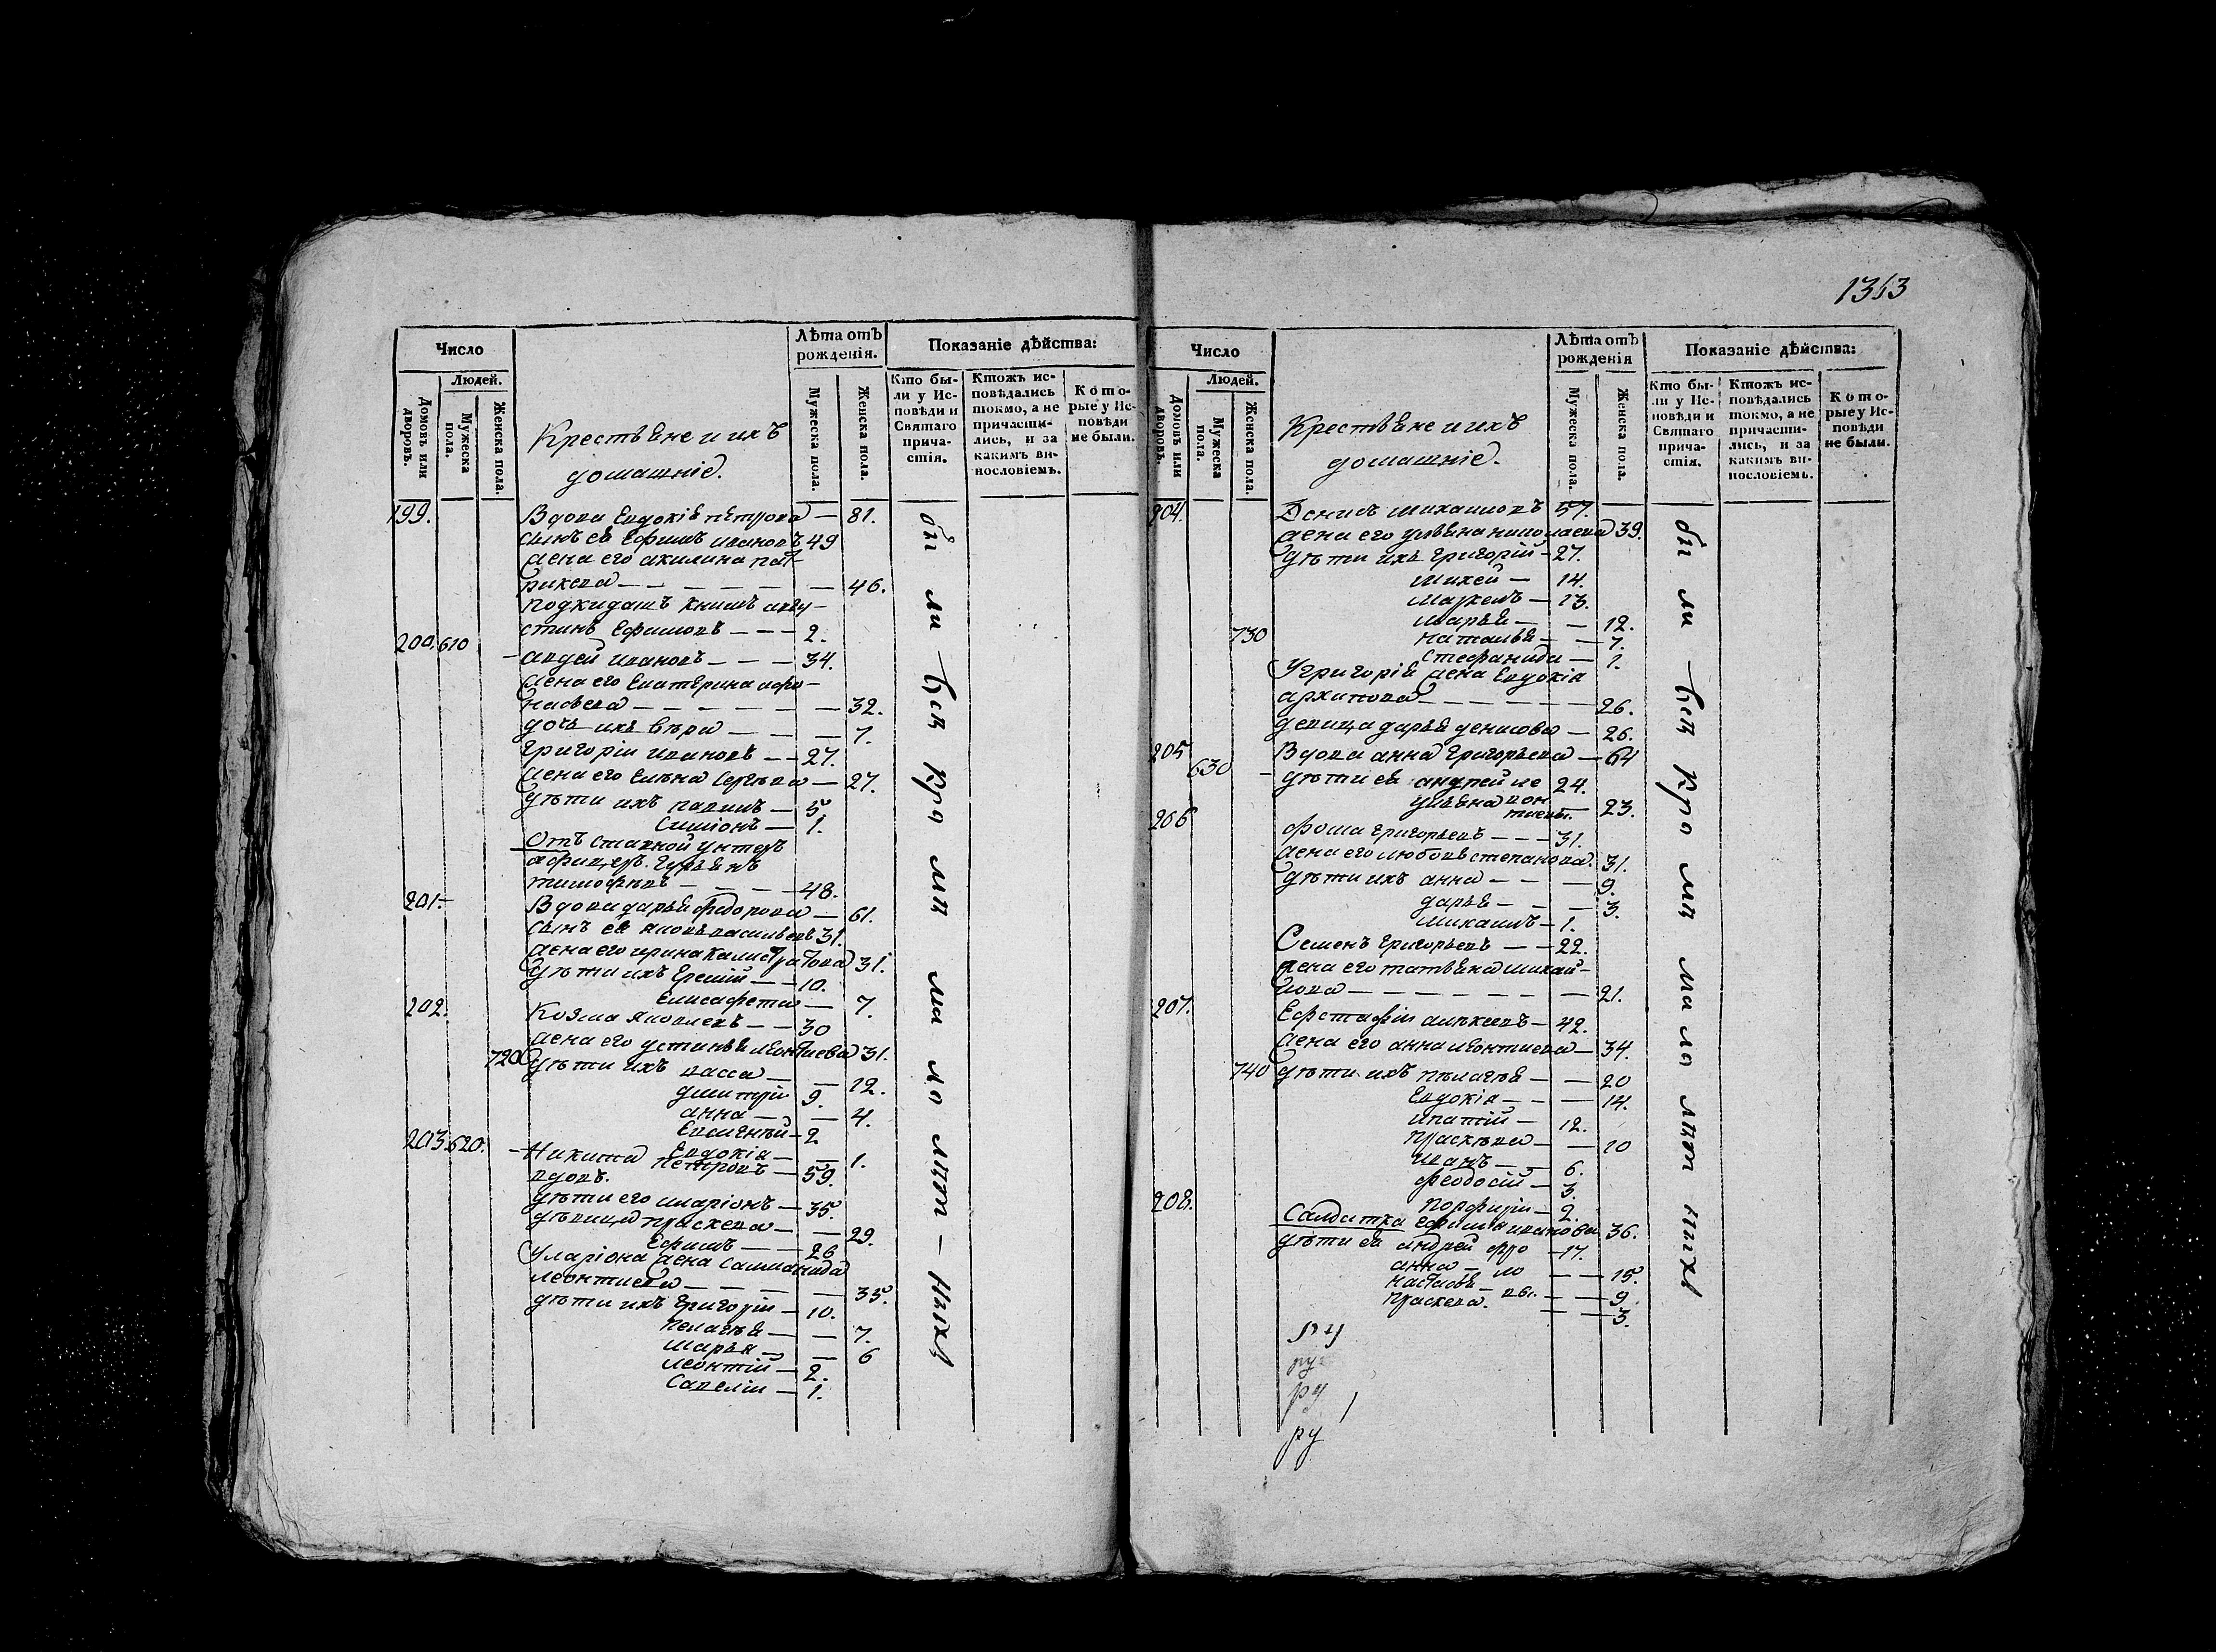 1363
Число
Лѣта отъ рожденія.
Показаніе дѣйства:
Людей.
Домовъ или дворовъ.
Мужеска пола.
Женска пола.
Крестьяне и ихъ
домашніе.
Мужеска пола.
Женска пола.
Кто бы-
ли у Ис-
повѣди и
Святаго
прича-
стія.
Ктожъ ис-
повѣдались
токмо, а не
причасти-
лись, и за
какимъ ви-
нословіемъ.
Кото-
рые у Ис-
повѣди
не были.
199. Вдова Евдокія Петрова — 81.
сынъ ея Ефимъ Ивановъ 49
жена его Акилина Пат-
рикева — 46.
подкидашъ Авгу-
стинъ Ефимовъ — 2.
200. 610 Авдей Ивановъ — 34.
жена его Екатерина Афо-
насьева — 32.
дочь ихъ Вѣра — 7.
Григорій Ивановъ — 27.
жена его Елена Сергѣева — 27.
дѣти ихъ Павелъ — 5
Симіонъ — 1.
Отъ ставной унтеръ
афицеръ. Гурьянъ
Тимофѣевъ — 48.
201. Вдова Дарья Федорова — 61.
сынъ ея Яковъ Васильевъ 31.
жена его Ирина Калистратова 31.
дѣти ихъ Еремій — 10.
Елисафета — 7.
202. Козма Яковлевъ — 30
жена его Устинья Леонтиева 31.
720 дѣти ихъ Васса — 12.
Дмитрій 9.
Анна — 4.
Евгеній — 2
Евдокія — 1.
203. 620. Никита Петровъ — 59.
вдовъ.
дѣти его Иларіонъ — 35.
дѣвица Праскева — 29.
Ефимъ — 26
У Ларіона жена Саламанида
Леонтиева — 35.
дѣти ихъ Григорій — 10.
Пелагѣя — 7.
Марья — 6
Леонтій — 2.
Савелій — 1.
бы ли Всѣ кро мѣ ма ло лѣт — ныхъ
Число
Лѣта отъ рожденія
Показаніе дѣйства:
Людей.
Домовъ или дворовъ.
Мужеска пола.
Женска пола.
Крестьяне и ихъ
домашніе.
Мужеска пола.
Женска пола.
Кто бы-
ли у Ис-
повѣди и
Святаго
прича-
стія.
Ктожъ ис-
повѣдались
токмо, а не
причасти-
лись, и за
какимъ ви-
нословіемъ.
Кото-
рые у Ис-
повѣди
не были.
204. Денисъ Михаиловъ 57.
жена его Ульяна Николаева 39.
дѣти ихъ Григорій — 27.
Михей — 14.
Маркелъ — 13.
Марья — 12.
730 Наталья — 7.
Стефанида — 1.
У Григорія жена Евдокія
Архипова — 26.
девица Дарья Денисова — 26.
205 Вдова Анна Григорьева — 64
630 дѣти ея Андрей Ле 24.
Ульяна вон 23.
тиевы.
206 Фома Григорьевъ — 31.
жена его Любовь Степанова. 31.
дѣти ихъ Анна — 9.
Дарья — 3.
Михаилъ — 1.
Семенъ Григорьевъ — 22.
жена его Татьяна Михай-
лова — 21.
207. Ефстафій Алѣксеевъ — 42.
жена его Анна Леонтиева — 34.
740 дѣти ихъ Пелагѣя — 20
Евдокія — 14.
Ипатій — 12.
Праскѣва — 10
Иванъ — 6.
Феодосій — 3.
Порфирій — 2.
208. Салдатка Ефимья Иванова 36.
дѣти ея Андрей Фро — 17.
Анна — ло — 15.
Настасья — вы. — 9
Праскева. — 3.
бы ли Всѣ кро мѣ ма ло лѣт ныхъ
ру
ру
ру
ру